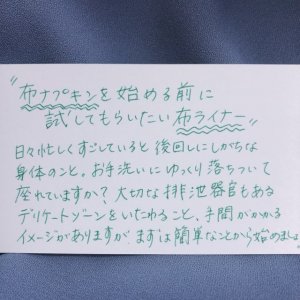 "布ナプキンを始める前に
試してもらいたい布ライナー"
日々忙しくすごしていると後回しにしがちな
身体のこと。お手洗いにゆっくり落ちついて
座れていますか？大切な排泄器官もある
デリケートゾーンをいたわること、手間がかかる
イメージがありますが、まずは簡単なことから始めましょ